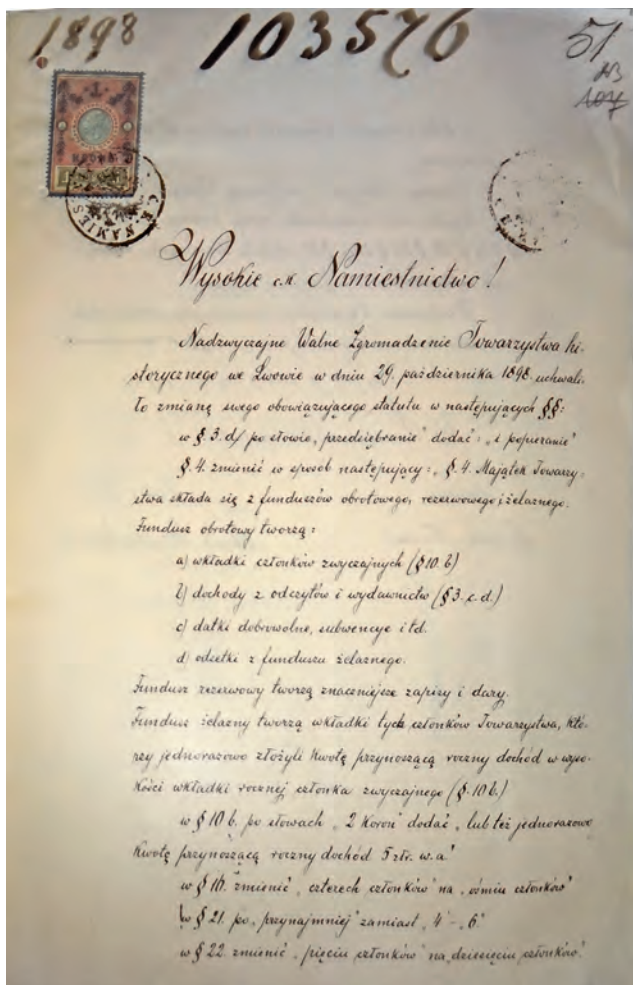 1898 103576 51
107
C. K. NAMIES
Wysokie c.k. Namiestnictwo!
Nadzwyczajne Walne Zgromadzenie Towarzystwa hi-
storycznego we Lwowie w dniu 29. października 1898 uchwali-
ło zmianę swego obowiązującego statutu w następujących §§:
w §. 3. d/ po słowie „przedsiębranie" dodać: „i popieranie"
§. 4. zmienić w sposób następujący: „§. 4. Majątek Towarzy-
stwa składa się z funduszów obrotowego, rezerwowego i żelaznego.
Fundusz obrotowy tworzą:
a) wkładki członków zwyczajnych (§ 10. b)
b) dochody z odczytów i wydawnictw (§ 3. c. d.)
c) datki dobrowolne, subwencye itd.
d) odsetki z funduszu żelaznego.
Fundusz rezerwowy tworzą znaczniejsze zapisy i dary.
Fundusz żelazny tworzą wkładki tych członków Towarzystwa, któ-
rzy jednorazowo złożyli kwotę przynoszącą roczny dochód w wyso-
kości wkładki rocznej członka zwyczajnego (§. 10 b.)
w § 10 b. po słowach „2 Koron" dodać „lub też jednorazowo
kwotę przynoszącą roczny dochód 5 złr. w. a."
w § 16. zmienić „czterech członków" na „ośmiu członków"
w § 21. po „przynajmniej" zamiast „4" – „6."
w § 22. zmienić „pięciu członków" na „dziesięciu członków."